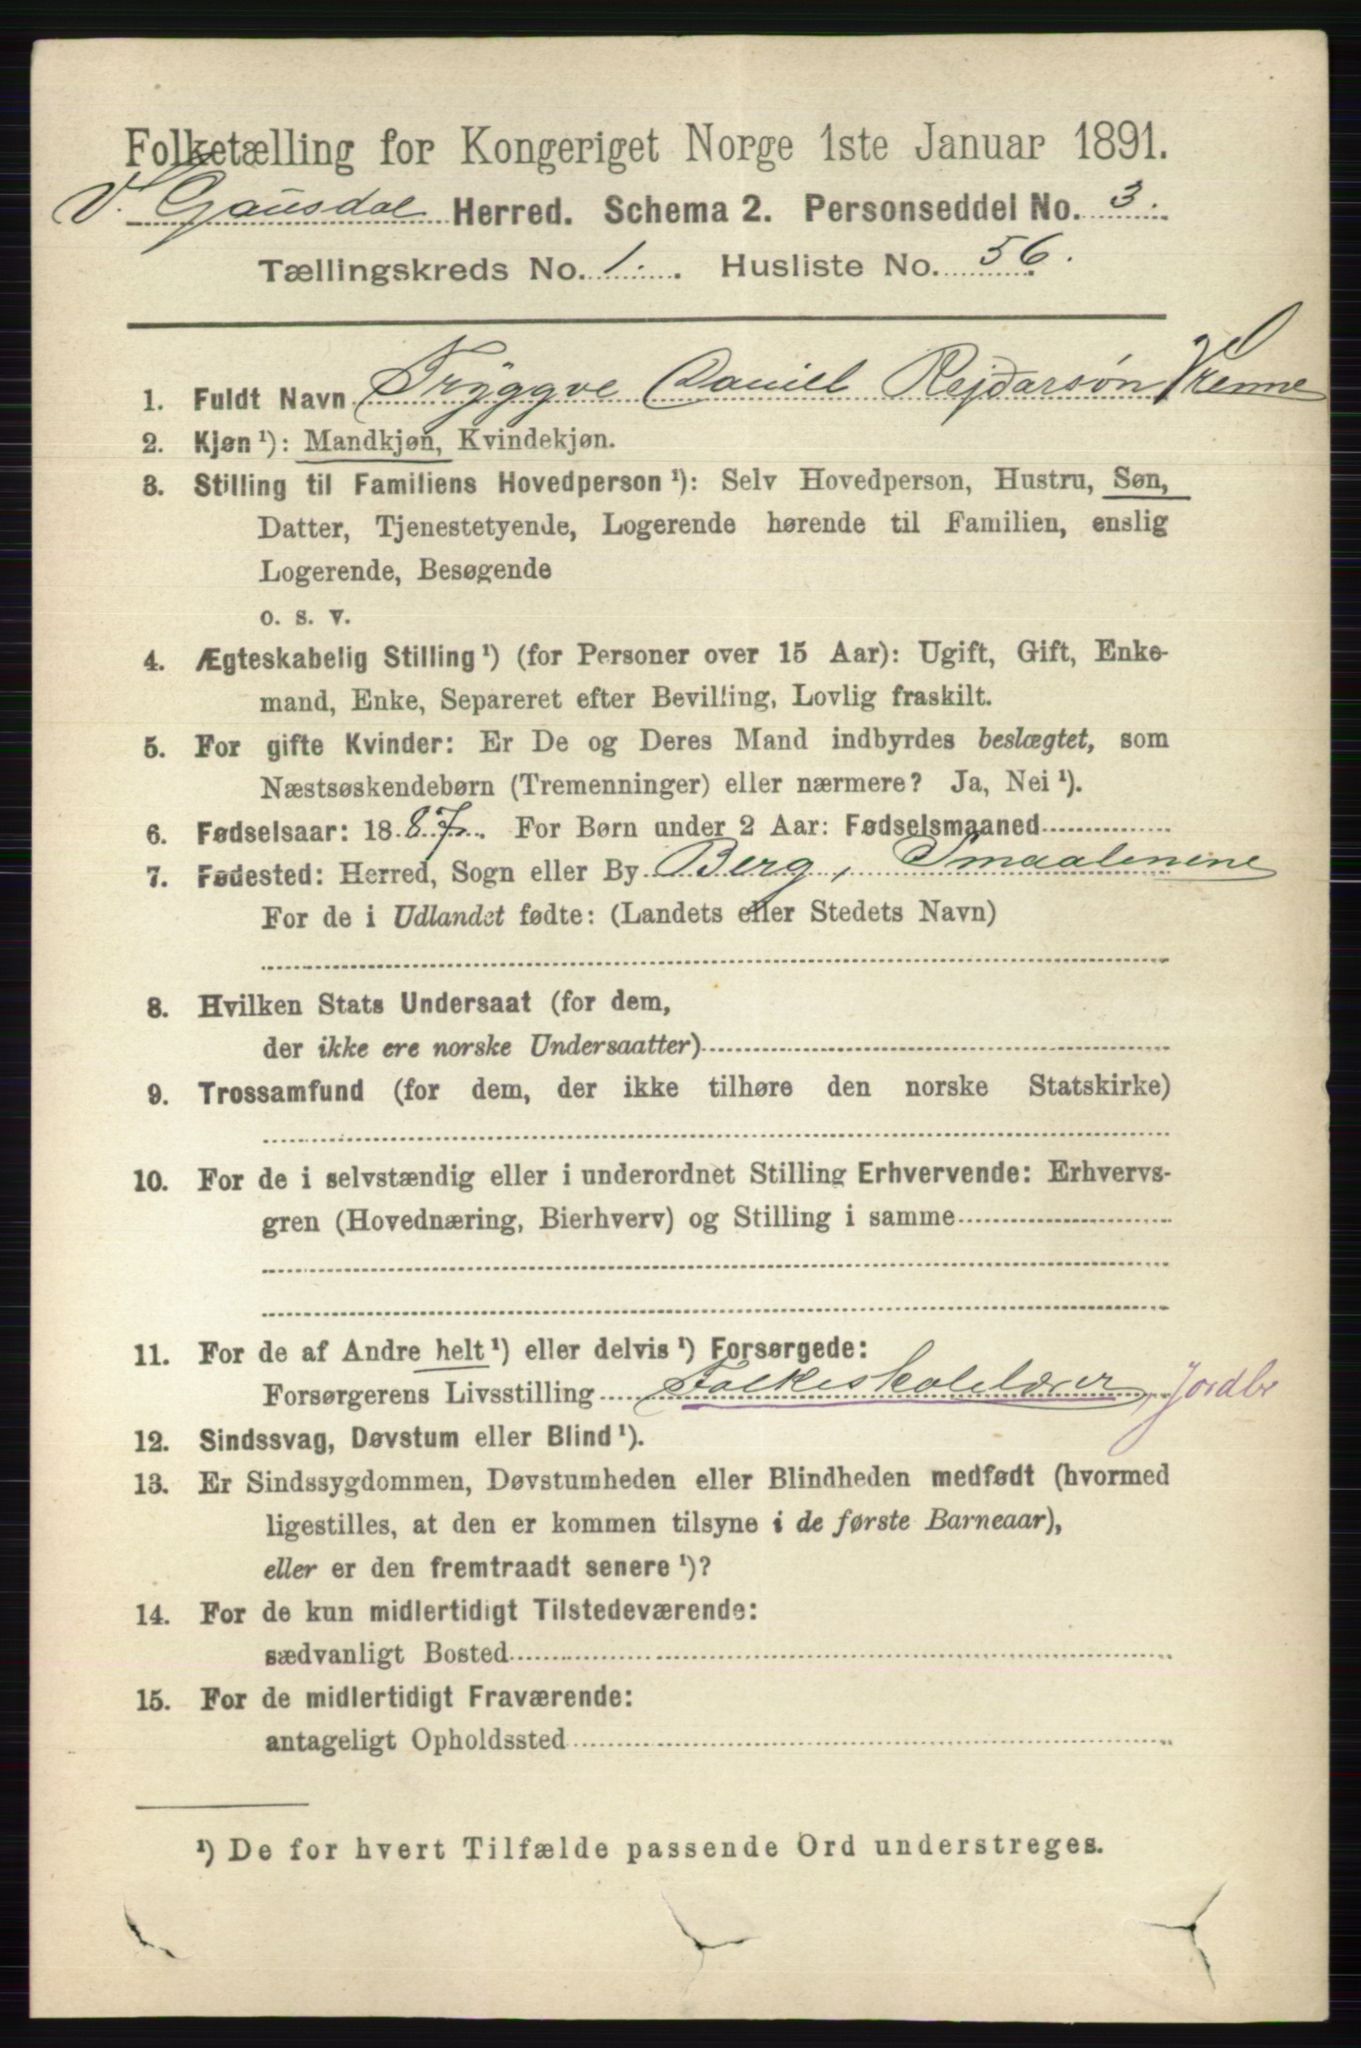 Folketælling for Kongeriget Norge 1ste Januar 1891.
V. Gausdal Herred. Schema 2. Personseddel No. 3.
Tællingskreds No. 1. Husliste No. 56.
1. Fuldt Navn Tryggve Daniel Rejdarsøn
2. Kjøn ¹): Mandkjøn, Kvindekjøn.
3. Stilling til Familiens Hovedperson ¹): Selv Hovedperson, Hustru, Søn,
Datter, Tjenestetyende, Logerende hørende til Familien, enslig
Logerende, Besøgende
o. s. v.
4. Ægteskabelig Stilling ¹) (for Personer over 15 Aar): Ugift, Gift, Enke-
mand, Enke, Separeret efter Bevilling, Lovlig fraskilt.
5. For gifte Kvinder: Er De og Deres Mand indbyrdes beslægtet, som
Næstsøskendebørn (Tremenninger) eller nærmere? Ja, Nei ¹).
6. Fødselsaar: 1887. For Børn under 2 Aar: Fødselsmaaned
7. Fødested: Herred, Sogn eller By Berg, Smaalenene
For de i Udlandet fødte: (Landets eller Stedets Navn)
8. Hvilken Stats Undersaat (for dem,
der ikke ere norske Undersaatter)
9. Trossamfund (for dem, der ikke tilhøre den norske Statskirke)
10. For de i selvstændig eller i underordnet Stilling Erhvervende: Erhvervs-
gren (Hovednæring, Bierhverv) og Stilling i samme
11. For de af Andre helt ¹) eller delvis ¹) Forsørgede:
Forsørgerens Livsstilling Folkeskolelærer, Jordbr
12. Sindssvag, Døvstum eller Blind ¹).
13. Er Sindssygdommen, Døvstumheden eller Blindheden medfødt (hvormed
ligestilles, at den er kommen tilsyne i de første Barneaar),
eller er den fremtraadt senere ¹)?
14. For de kun midlertidigt Tilstedeværende:
sædvanligt Bosted
15. For de midlertidigt Fraværende:
antageligt Opholdssted
¹) De for hvert Tilfælde passende Ord understreges.